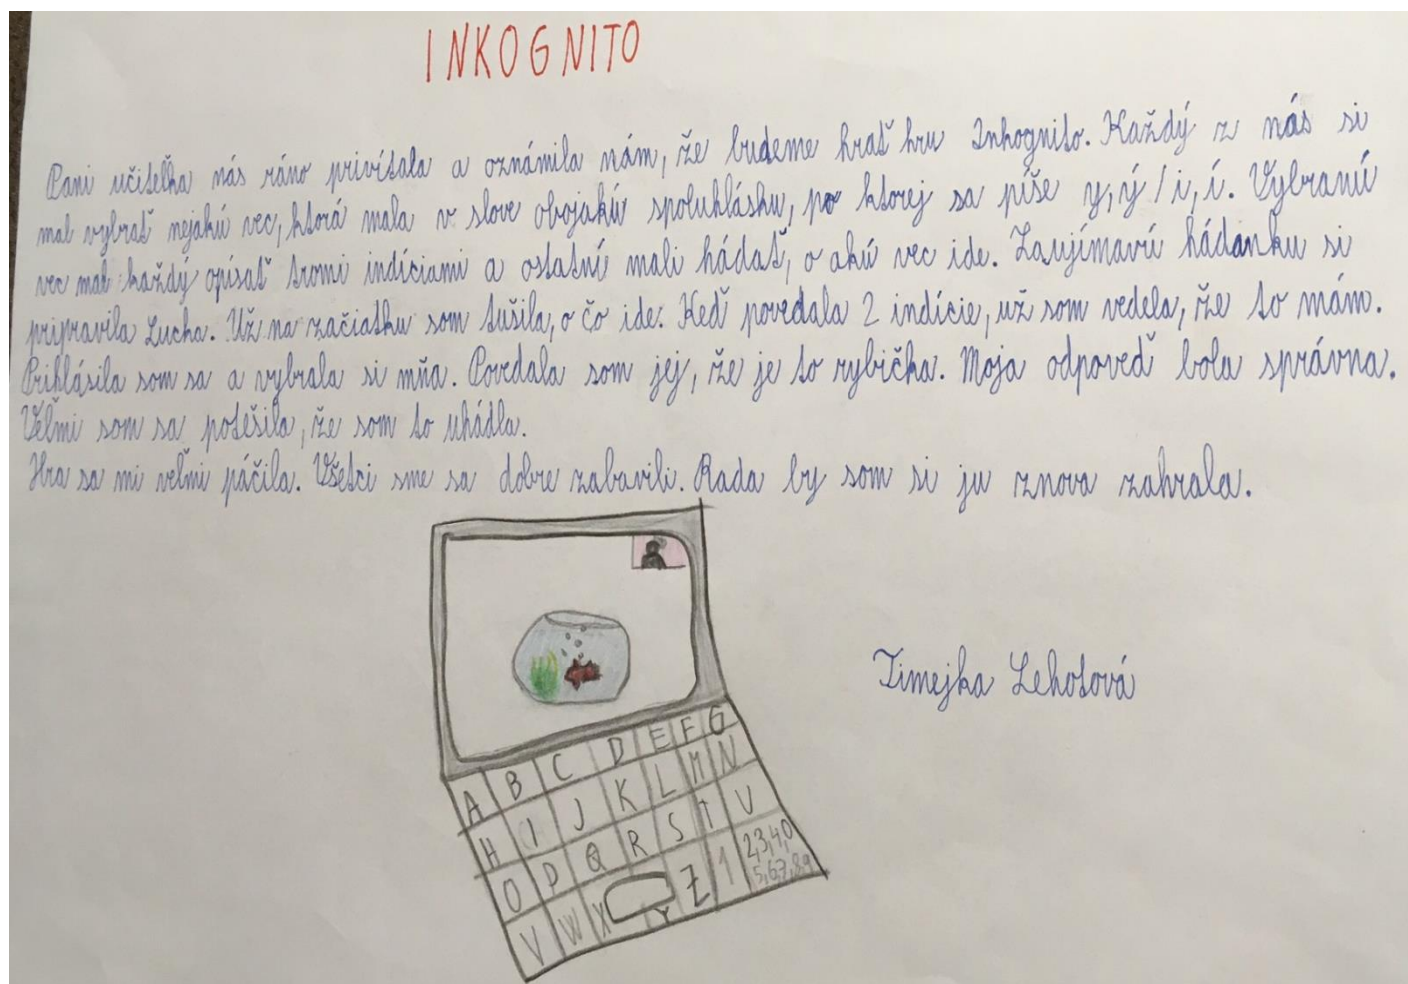 INKOGNITO
Pani učiteľka nás ráno privítala a oznámila nám, že budeme hrať hru Inkognito. Každý z nás si
mal vybrať nejakú vec, ktorá mala v slove obojakú spoluhlásku, po ktorej sa píše y, ý / i, í. Vybranú
vec mal každý opísať tromi indíciami a ostatní mali hádať, o akú vec ide. Zaujímavú hádanku si
pripravila Lucka. Už na začiatku som tušila, o čo ide. Keď povedala 2 indície, už som vedela, že to mám.
Prihlásila som sa a vybrala si mňa. Povedala som jej, že je to rybička. Moja odpoveď bola správna.
Veľmi som sa potešila, že som to uhádla.
Hra sa mi veľmi páčila. Všetci sme sa dobre zabavili. Rada by som si ju znova zahrala.
Timejka Lehotová
A B C D E F G
H I J K L M N
O P Q R S T U
V W X Y Z 1 2,3,4,0
5,6,7,8,9